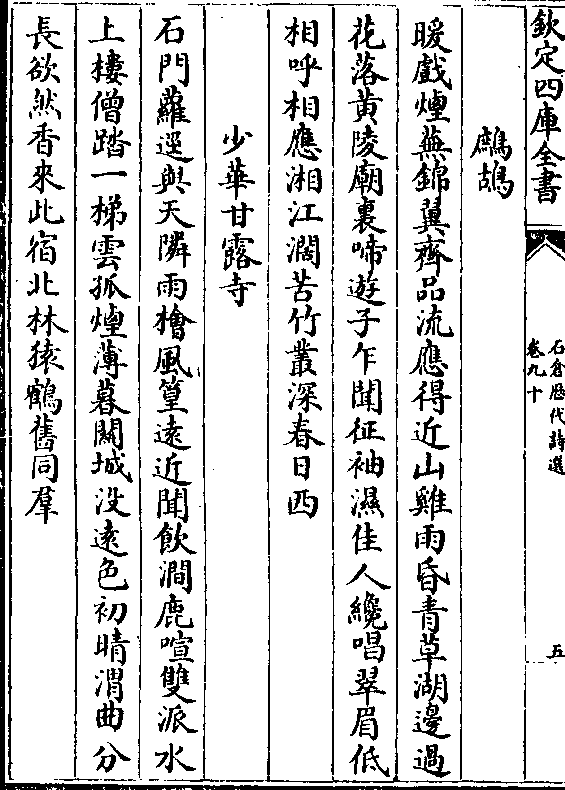 欽定四庫全書
石倉歴代詩選
卷九十
五
鷓鴣
暖戲煙蕪錦翼齊品流應得近山雞雨昏青草湖邊過
花落黄陵廟裏啼遊子乍聞征袖濕佳人纔唱翠眉低
相呼相應湘江濶苦竹叢深春日西
少華甘露寺
石門蘿逕與天隣雨檜風篁遠近聞飲澗鹿喧雙派水
上樓僧踏一梯雲孤煙薄暮關城没遠色初晴渭曲分
長欲然香來此宿北林猿鶴舊同羣